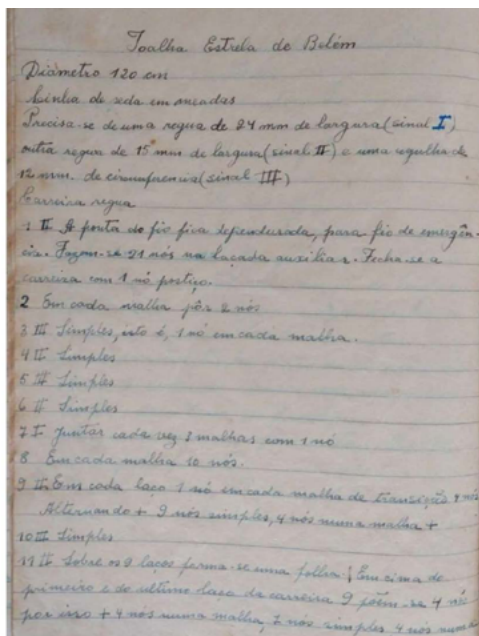 Toalha Estrela de Belém
Diâmetro 120 cm
Linha de seda em meadas
Precisa-se de uma regua de 24 mm de largura (sinal I)
outra regua de 15 mm de largura (sinal II) e uma agulha de
12 mm. de circunferencia (sinal III)
Carreira regua
1 II A ponta do fio fica dependurada, para fio de emergên-
cia. Fazem-se 21 nós na laçada auxiliar. Fecha-se a
carreira com 1 nó postiço.
2 Em cada malha pôr 2 nós
3 III Simples, isto é, 1 nó em cada malha.
4 II Simples
5 II Simples
6 II Simples
7 I Juntar cada vez 3 malhas com 1 nó
8 Em cada malha 10 nós.
9 II Em cada laço 1 nó em cada malha de transição 4 nós
Alternando + 9 nós simples, 4 nós numa malha +
10 II Simples
11 II Sobre os 9 laços forma-se uma folha: Em cima do
primeiro e do ultimo laço da carreira 9 põem-se 4 nós
por isso + 4 nós numa malha, 7 nós simples 4 nós numa